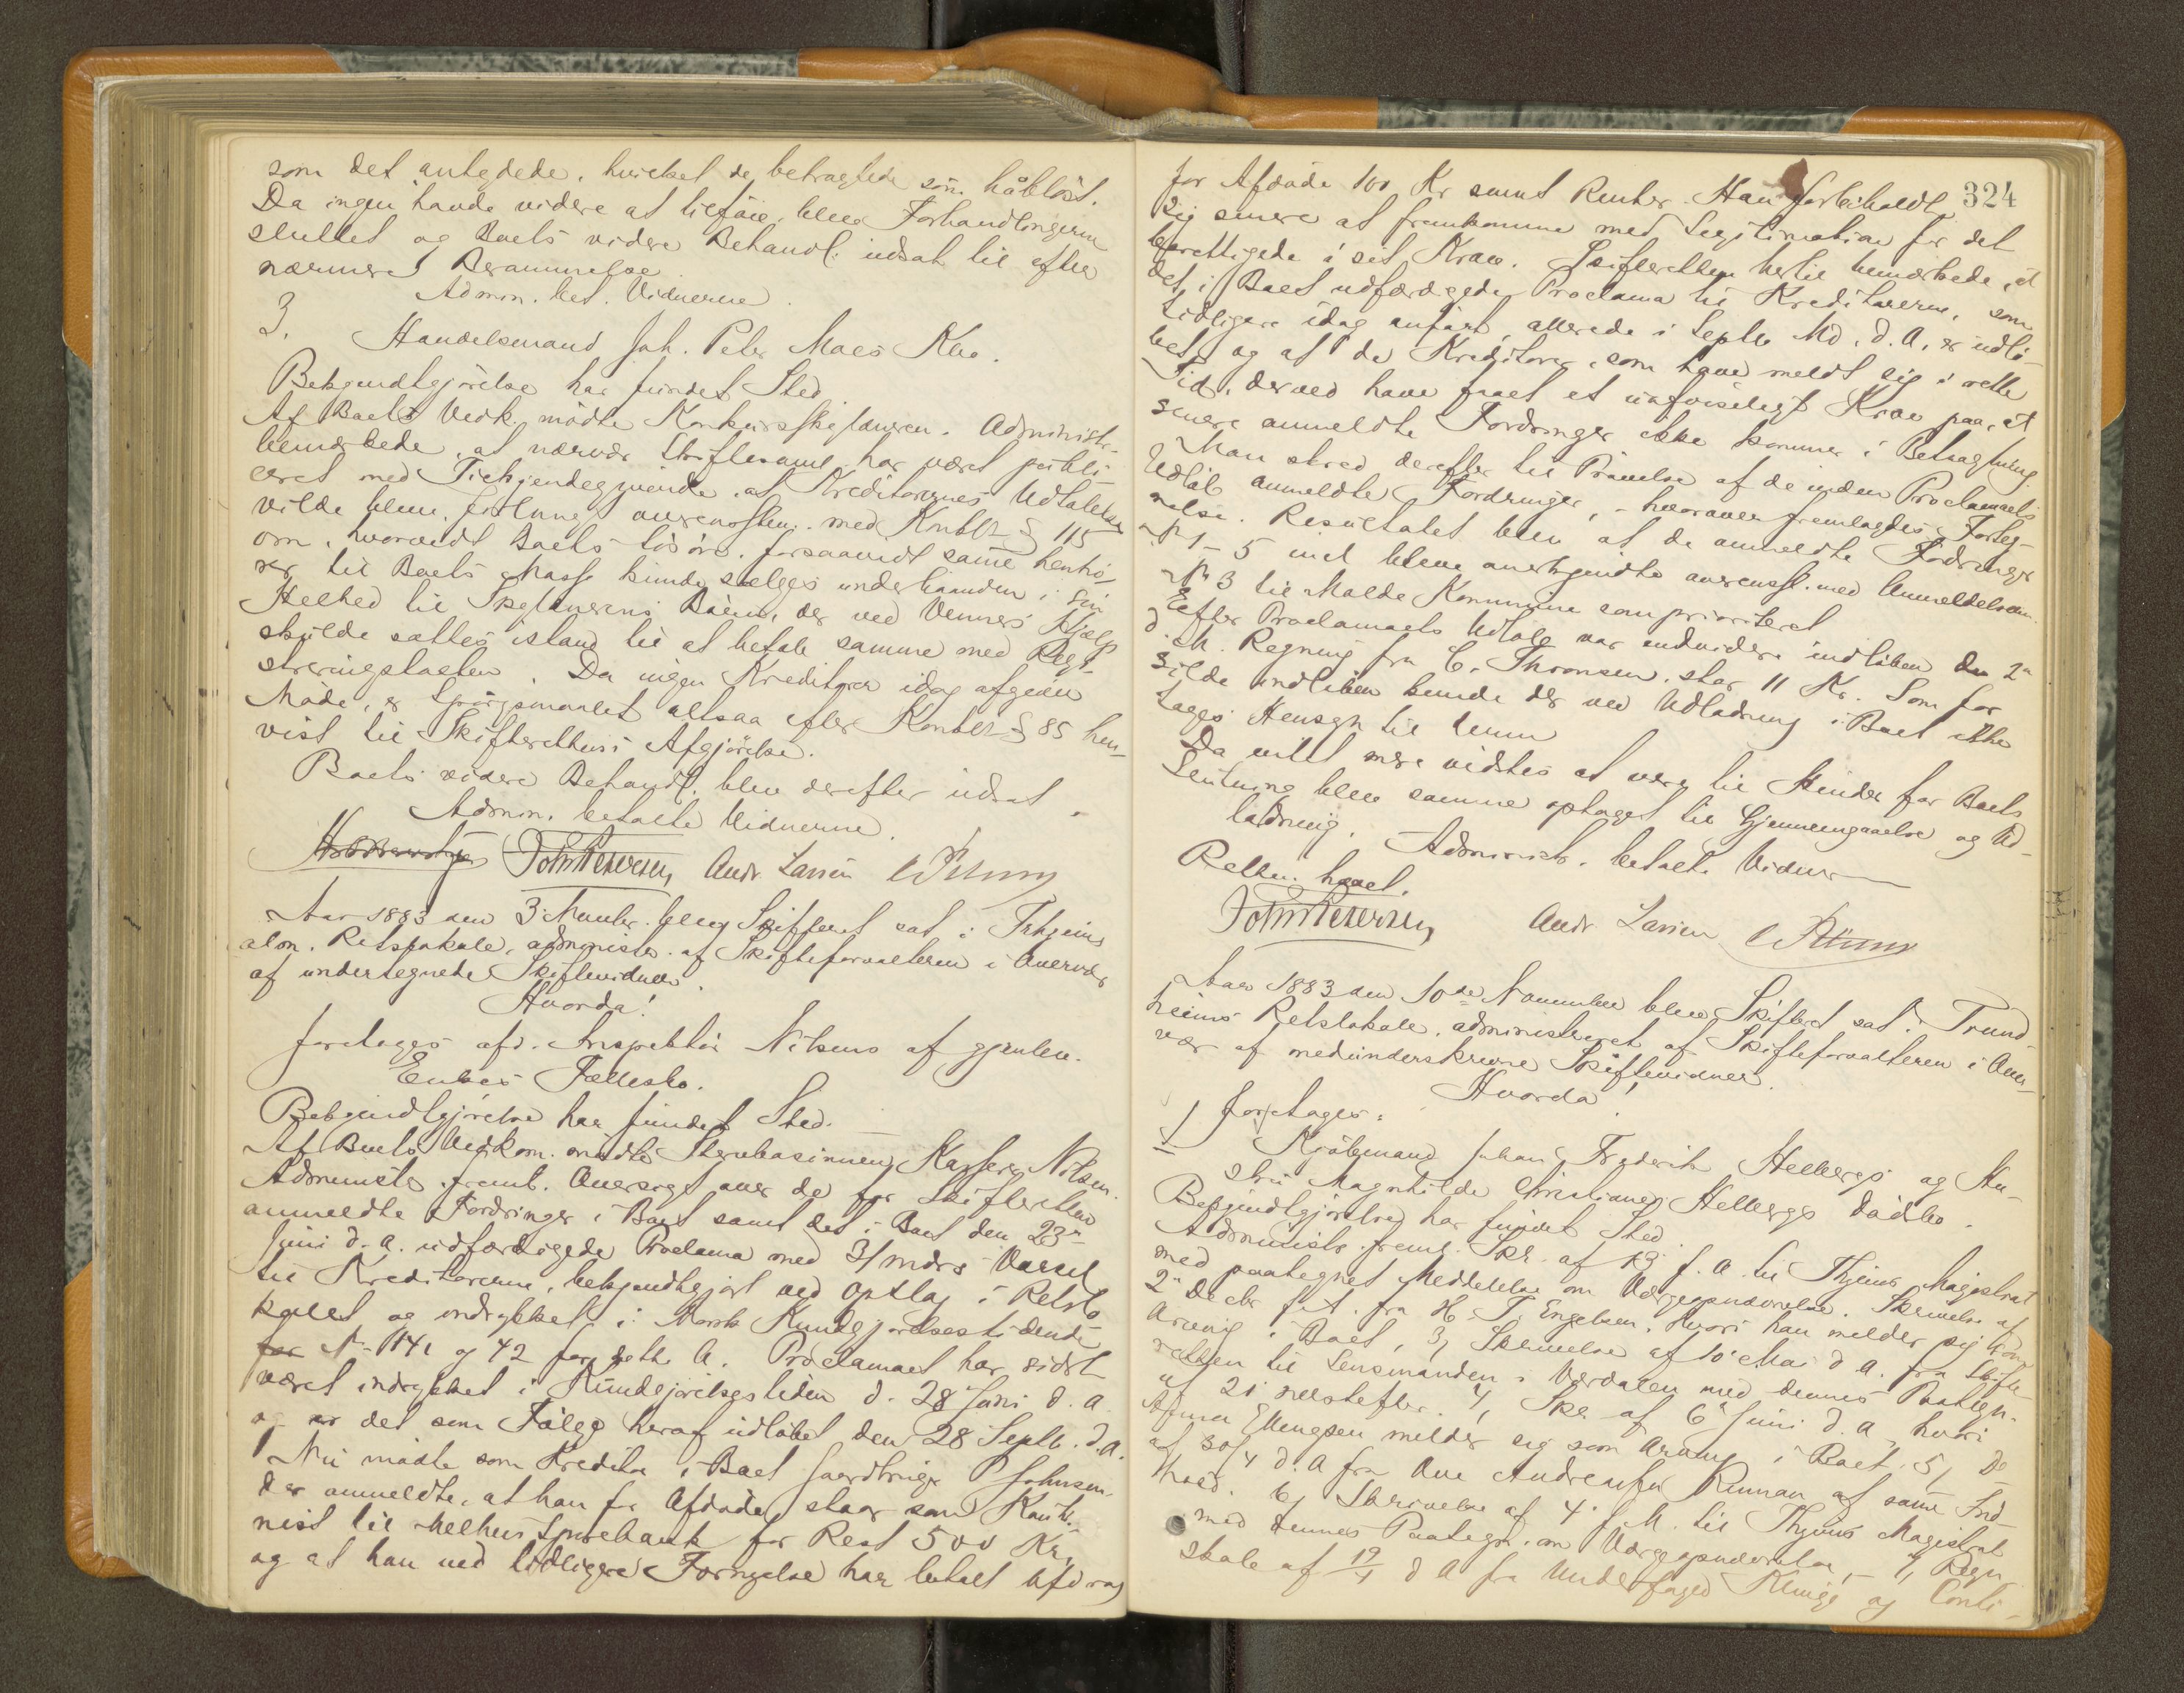 som det antydede, hvilket de betragtede som håbløst.
Da ingen havde videre at tilføie, blev Forhandlingerne
sluttet og Boets videre Behandl. udsat til efter
nærmere Berammelse.
Admin. bet. Vidnerne.
3. Handelsmand Joh. Peter Moes Kbo.
Bekjendtgjørelse har fundet Sted
Af Boets Vedk. mødte Konkursskyldneren. Administr.
bemærkede, at nærvær. Skiftesaml. har været publi-
ceret med Tilkjendegivende, at Kreditorernes Udtalelse
vilde blive forlangt overensst. med Konkl. § 115
om, hvorvidt Boets Løsøre, forsaavidt samme henhø-
rer til Boets Masse kunde sælges underhaanden i sin
Helhed til Skyldnerens Børn, der ved Venners Hjælp
skulde sættes istand til at betale samme med Regi-
streringstaxten. Da ingen Kreditorer idag afgiver
Møde, er Spørgsmaalet altsaa efter Konkl. § 85 hen-
vist til Skifterettens Afgjørelse.
Boets videre Behandl. blev derefter udsat.
Admin. betalte Vidnerne.
John Petersen Andr. Larsen
Aar 1883 den 3 Novbr. blev Skifteret sat i Trhjems
alm. Retslokale, administr. af Skifteforvalteren i Overvær
af undertegnede Skiftevidner.
Hvorda!
foretages afd. Inspektør Nilsens af gjenlev.
Enkes Fællesbo.
Bekjendtgjørelse har fundet Sted.
Af Boets Vedkom. mødte Stervboesinden Kasserer Nilsen.
Administr. freml. Oversigt over de for Skifteretten
anmeldte Fordringer i Boet samt det i Boet den 23de
Juni d. A. udfærdigede Proclama med 3 Mdrs Varsel
til Kreditorerne, bekjendtgjort ved Opslag i Retslo-
kalet og indrykket i Norsk Kundgjørelsestidende
for No 141 og 42 for dette A. Proclamaet har sidst
været indrykket i Kundgjørelsestiden d. 28 Juni d. A.
og er det som Følge heraf udløbet den 28 Septb. d. A.
Nu mødte som Kreditor i Boet Gaardbruger P Johnsen
der anmeldte, at han for Afdøde staar som Kautio-
nist til Melhus Sparebank for Rest 500 Kr.
og at han ved tidligere Fornyelse har betalt Afdrag
324
for Afdøde 100 Kr samt Renter. Han forbeholdt
sig senere at fremkomme med Legitimation for det
berettigede i sit Krav. Skifteretten hertil bemærkede, at
det i Boet udfærdigede Proclama til Kreditorerne, som
tidligere idag anført, allerede i Septb Md. d. A. er udlø-
bet og at de Kreditorer, som have meldt sig i rette
Tid, derved have faaet et uafviseligt Krav paa, at
senere anmeldte Fordringer ikke kommer i Betragtning.
Man skred derefter til Prøvelse af de inden Proclamaets
Udløb anmeldte Fordringer, - hvorover fremlagdes Forteg-
nelse. Resultatet blev at de anmeldte Fordringer
No 1 - 5 incl bleve anerkjendte overensst. med Anmeldelsen.
No 3 til Molde Kommune som prioriteret
Efter Proclamaets Udløb var endvidere indløben den 2de
d. M. Regning fra C. Thronsen, stor 11 Kr. Som for
silde indløben kunde der ved Udlodning i Boet ikke
tages Hensyn til denne
Da intet mere vidstes at være til Hinder for Boets
Slutning blev samme optaget til Gjennemgaaelse og Ud-
lodning. Administr. betalte Vidnerne
Retten hævet.
John Petersen Andr Larsen
Aar 1883 den 10de November blev Skifteret sat i Trond-
hjems Retslokale, administreret af Skifteforvalteren i Over-
vær af medunderskrevne Skiftevidner.
Hvorda!
1/ foretages:
Kjøbmand Johan Frederik Hellbergs og Hu-
stru Magnhilde Christianes Hellbergs Dødsbo.
Bekjendtgjørelse har fundet Sted
Administr. freml. Skr. af f. A. til Thjems Magistrat
med paategnet Meddelelse om Værgeopnævnelse. Skrivelse af
2de Decbr f. A. fra H. T. Engelsen, hvori han melder sig som
Arving i Boet, 3, Skrivelse af 10de Mai d A. fra Skifte-
retten til Lensmanden i Værdalen med dennes Paategn.
af 21 næstefter. 4, Skr af 6te Juni d. A, hvori
Anna Ellingsen melder sig som Arving i Boet. 5, Do
af 30/4 d. A fra Ane Andreasdtr Rinnan af samme Ind-
hold. 6, Skrivelse af 4de f. M. til Thjems Magistrat
med dennes Paategn. om Værgeopnævnelse, - 7, Regn
skab af 19/4 d A fra Underfoged Klinge og Conti-